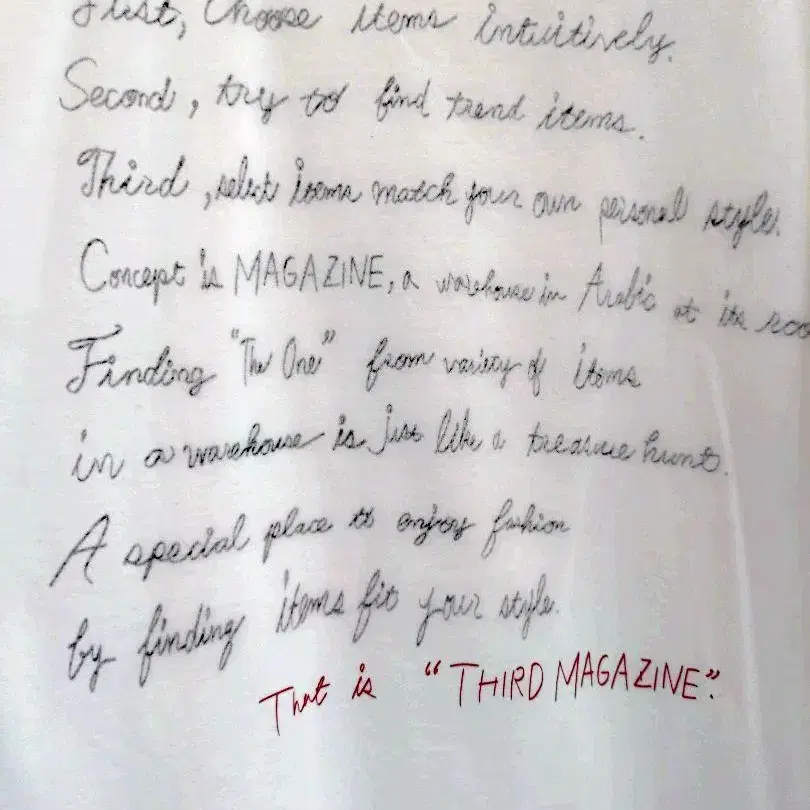 First, Choose items intuitively.
Second, try to find trend items.
Third, select items match your own personal style.
Concept is MAGAZINE, a warehouse in Arabic at its roo
Finding "The One" from variety of items
in a warehouse is just like a treasure hunt.
A special place to enjoy fashion
by finding items fit your style.
That is "THIRD MAGAZINE".